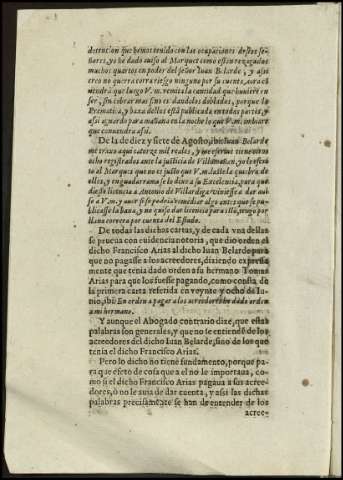 detencion que hemos tenido con las ocupaciones destos se-
ñores, yo he dado auiso al Marques como estan rezagados
muchos quartos en poder del señor Iuan Belarde, y assi
creo no querra corra riesgo ninguno por su cuenta, otra cõ-
uendrà que luego V.m. remita la cantidad que huuiere en
ser, sin cobrar mas sino es dandolos doblados, porque la
Prematica, y baxa dellos està publicada en todas partes, y
assi aguardo para mañana en la noche lo que V.m. ordenare
que conuendra assi.
De la de diez y siete de Agosto, ibi: Iuan Belarde
me traxo aqui catorze mil reales, y me escriue tiene otros
ocho registrados ante la justicia de Villamañan, yo lo escri-
uo al Marques que no es justo que V.m. laste la quiebra de
ellos, y en guadarrama se lo dixe a su Excelencia, para que
diesse licencia a Antonio de Villardiga viniesse a dar aui-
so à V.m. y auer si se podria remediar algo antes que se pu-
blicasse la baxa, y no quiso dar licencia para ello, traygo por
llano correra por cuenta del Estado.
De todas las dichas cartas, y de cada vna dellas
se prueua con euidencia notoria, que dio orden el
dicho Francisco Arias al dicho Iuan Belarde para
que no pagasse a los acreedores, diziendo expressa
mente que tenia dado orden a su hermano Tomas
Arias para que los fuesse pagando, como consta de
la primera carta referida en veynte y ocho de Iu-
nio, ibi: En orden a pagar a los acreedores he dado orden
a mi hermano.
Y aunque el Abogado contrario dize, que estas
palabras son generales, y que no le entiende de los
acreedores del dicho Iuan Belarde, sino de los que
tenia el dicho Francisco Arias.
Pero lo dicho no tiene fundamento, porque pa-
ra que efeto de cosa que a el no le importaua, co-
mo si el dicho Francisco Arias pagaua a sus acree-
dores, ò no le auia de dar cuenta, y assi las dichas
palabras precisamẽte se han de entender de los
acree-